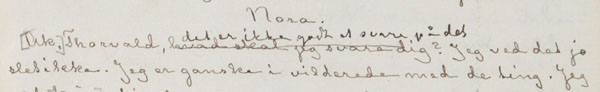 Nora.
det er ikke godt at svare på det
[Drk.] Thorvald, hvad skal jeg svare dig? Jeg ved det jo
slet ikke. Jeg er ganske i vilderede med de ting. Jeg